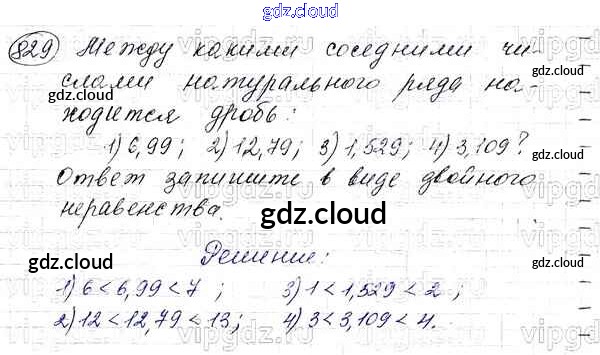 gdz.cloud
829 Между какими соседними чи-
слами натурального ряда на-
ходится дробь:
1) 6,99; 2) 12,79; 3) 1,529; 4) 3,109?
Ответ запишите в виде двойного
неравенства.
gdz.cloud
Решение:
1) 6 < 6,99 < 7 ; 3) 1 < 1,529 < 2 ;
2) 12 < 12,79 < 13; 4) 3 < 3,109 < 4.
gdz.cloud
gdz.cloud
gdz.cloud
gdz.cloud
gdz.cloud